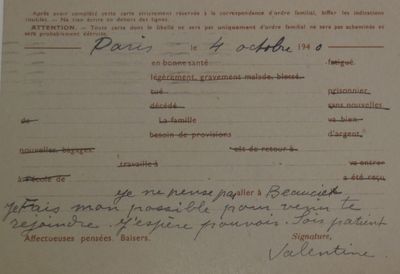 Après avoir complété cette carte strictement réservée à la correspondance d'ordre familial, biffer les indications
inutiles. — Ne rien écrire en dehors des lignes.
ATTENTION. — Toute carte dont le libellé ne sera pas uniquement d'ordre familial ne sera pas acheminée et
sera probablement détruite.
Paris le 4 octobre 1940
en bonne santé fatigué
légèrement, gravement malade, blessé.
tué prisonnier
décédé sans nouvelles
de La famille va bien
besoin de provisions d'argent.
nouvelles, bagages est de retour à
travaille à va entrer
à l'école de a été reçu
je ne pense pas aller à
je fais mon possible pour venir te
rejoindre. J'espère pouvoir. Sois patient
Affectueuses pensées. Baisers. Signature,
Valentine.